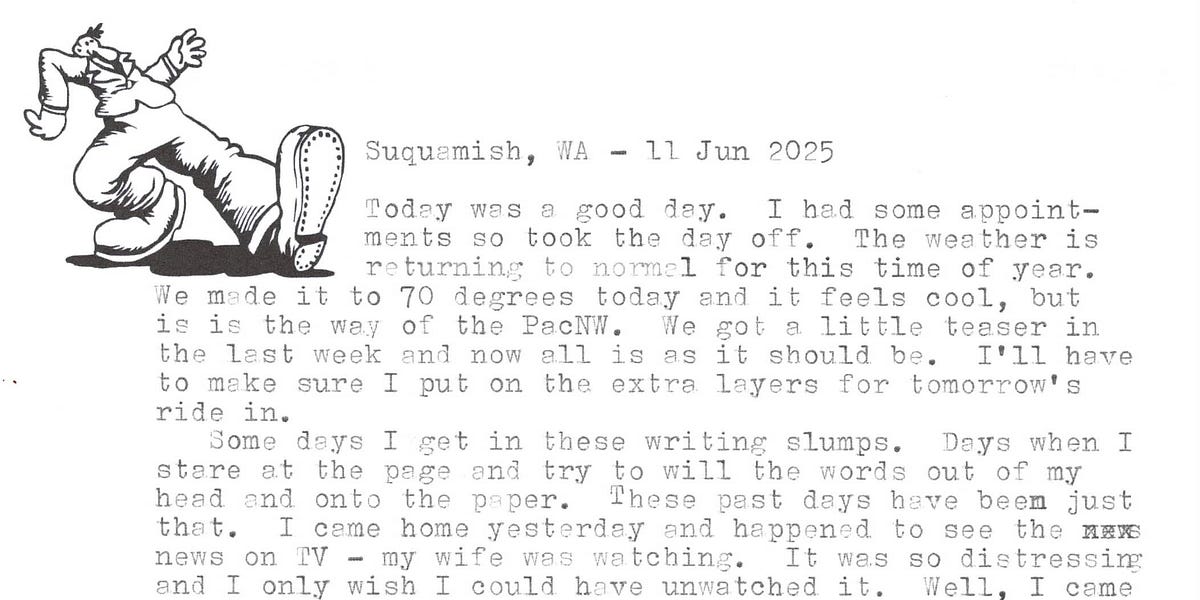 Suquamish, WA - 11 Jun 2025
Today was a good day.  I had some appoint-
ments so took the day off.  The weather is
returning to normal for this time of year.
We made it to 70 degrees today and it feels cool, but
is is the way of the PacNW.  We got a little teaser in
the last week and now all is as it should be.  I'll have
to make sure I put on the extra layers for tomorrow's
ride in.
Some days I get in these writing slumps.  Days when I
stare at the page and try to will the words out of my
head and onto the paper.  These past days have been just
that.  I came home yesterday and happened to see the
news on TV - my wife was watching.  It was so distressing
and I only wish I could have unwatched it.  Well, I came